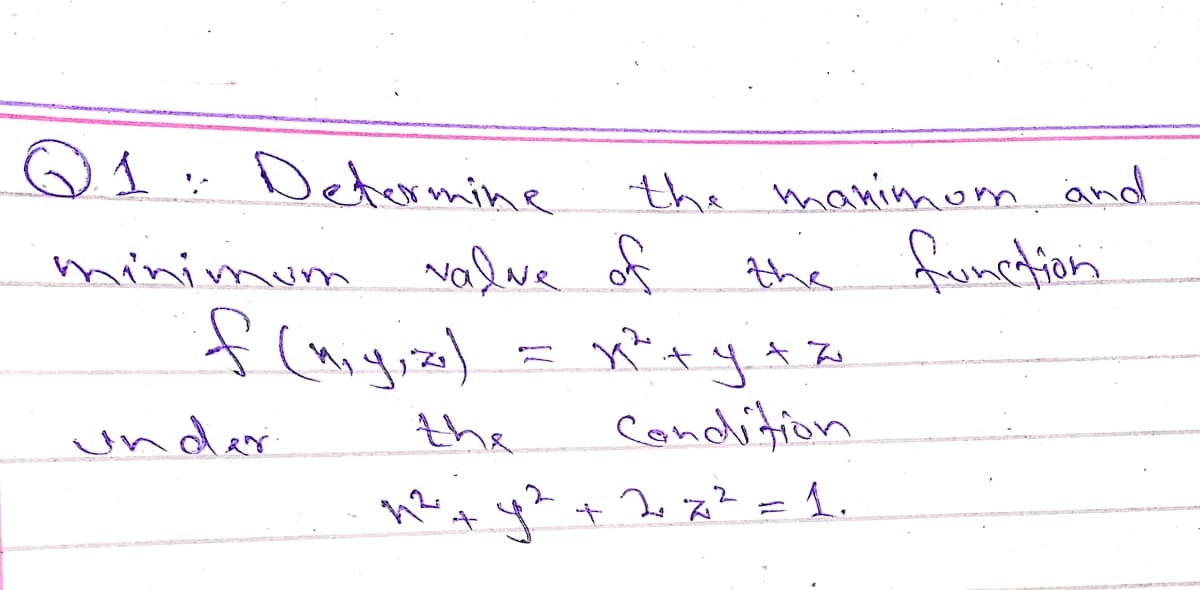 Q1: Determine the maximum and
minimum value of the function
f(x,y,z) = x² + y + z
under the condition
x² + y² + 2z² = 1.